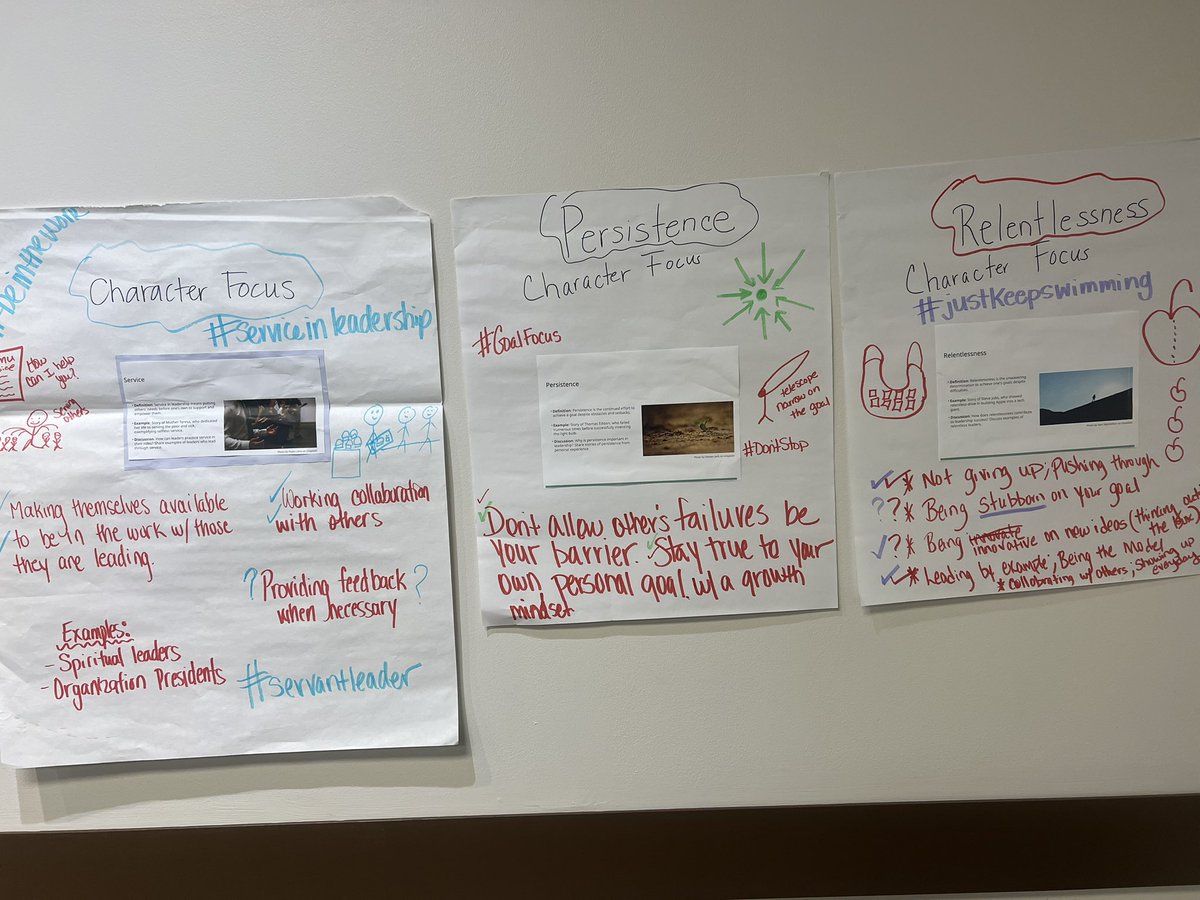 Be in the work
Character Focus
#serviceinleadership
How
can I help
you?
Serving
others
Service
Definition: Service in leadership means putting
others' needs before one's own to support and
empower them.
Example: Story of Mother Teresa, who dedicated
her life to serving the poor and sick,
exemplifying selfless service.
Discussion: How can leaders practice service in
their roles? Share examples of leaders who lead
through service.
Making themselves available
to be in the work w/ those
they are leading.
Working collaboration
with others
? Providing feedback ?
when necessary
Examples:
- Spiritual leaders
- Organization Presidents
#servantleader
Persistence
Character Focus
#GoalFocus
Persistence
Definition: Persistence is the continued effort to
achieve a goal despite obstacles and setbacks.
Example: Story of Thomas Edison, who failed
numerous times before successfully inventing
the light bulb.
Discussion: Why is persistence important in
leadership? Share stories of persistence from
personal experience.
telescope
narrow on
the goal
#DontStop
Don't allow other's failures be
your barrier. Stay true to your
own personal goal w/ a growth
mindset
Relentlessness
Character Focus
#justkeepswimming
Relentlessness
Definition: Relentlessness is the unwavering
determination to achieve one's goals despite
difficulties.
Example: Story of Steve Jobs, who showed
relentless drive in building Apple into a tech
giant.
Discussion: How does relentlessness contribute
to leadership success? Discuss examples of
relentless leaders.
* Not giving up; Pushing through
??* Being Stubborn on your goal
?* Being innovate innovative on new ideas (thinking outside
the box)
* Leading by example, Being the Model
* collabrating w/ others, showing up
everyday